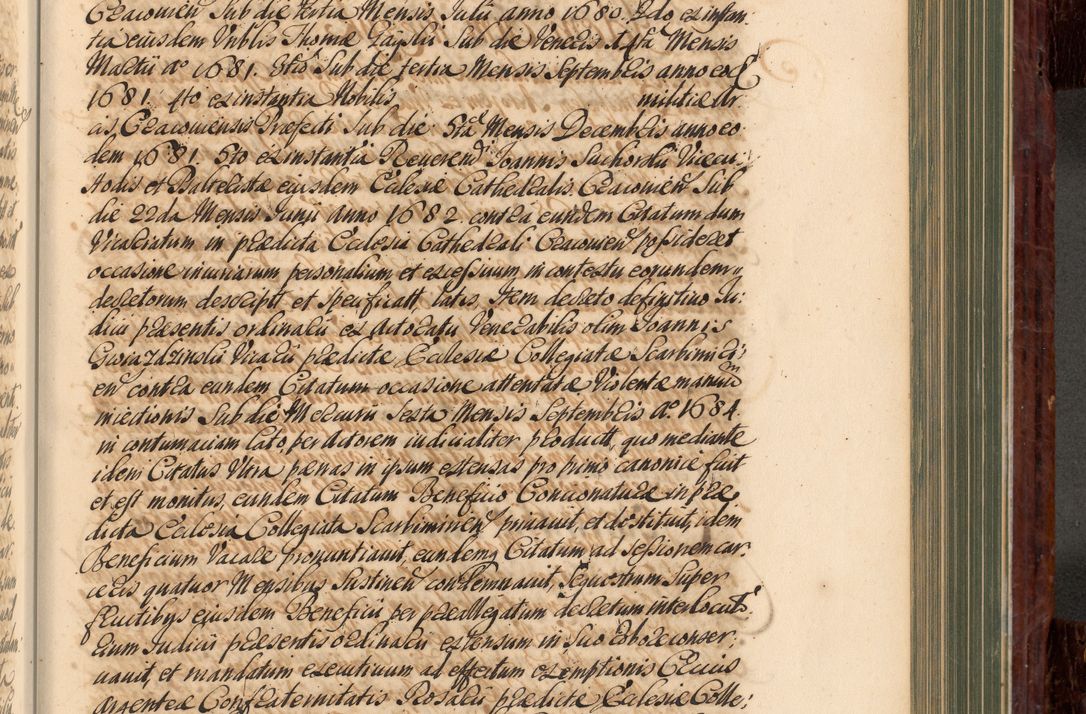 Cracovien Sub die tertia Mensis Julii anno 1680. 2do ex instan
tia eiusdem Vnblis Thomæ Sub die Veneris Mensis
Martii aº 1681. 3tio Sub die tertia Mensis Septembris anno eod
1681. 4to ex instantia Nobilis militiæ Ar
cis Cracoviensis Præfecti Sub die 3tia Mensis Decembris anno eo
dem 1681. 5to ex instantia Reverend Joannis Suchorski Vicecu
stodis et eiusdem Ecclesiæ Cathedralis Cracovien Sub
die 22da Mensis Junii anno 1682 contra eundem Citatum dum
Vicariatum in prædicta Ecclesia Cathedrali Cracovien possideret
occasione iniuriarum personalium et excessuum in contextu eorundem
decretorum descript et specificatt, latis. Item decreto definitivo Ju:
dicii præsentis ordinarii ex actoratu Venerabilis olim Joannis
Gwiazdzinski Vicarii prædictæ Ecclesiæ Collegiatæ Scarbimiri:
en contra eundem Citatum occasione attentatæ Violentæ manuum
iniectionis Sub die Mercurii Sexta Mensis Septembris aº 1684.
in contumaciam lato, per Actorem iudicialiter product, quo mediante
idem Citatus Vltra pænas in ipsum extensas pro primo canonice fuit
et est monitus, eundem Citatum Beneficio Concionaturæ in præ
dicta Ecclesia Collegiata Scarbimirien privavit, et destituit, idem
Beneficium Vacare pronuntiavit, eundemq Citatum ad sessionem car
ceris quatuor Mensibus Sustinen condemnavit, Sequestrum Super
fructibus eiusdem Beneficii per præallegatum decretum interlocuto
rium Judicii præsentis ordinarii extensum in Suo robore conser
vavit, et mandatum executivum ad effectum exemptionis Crucis
argenteæ Confraternitatis Rosarii prædictæ Ecclesiæ Colle: